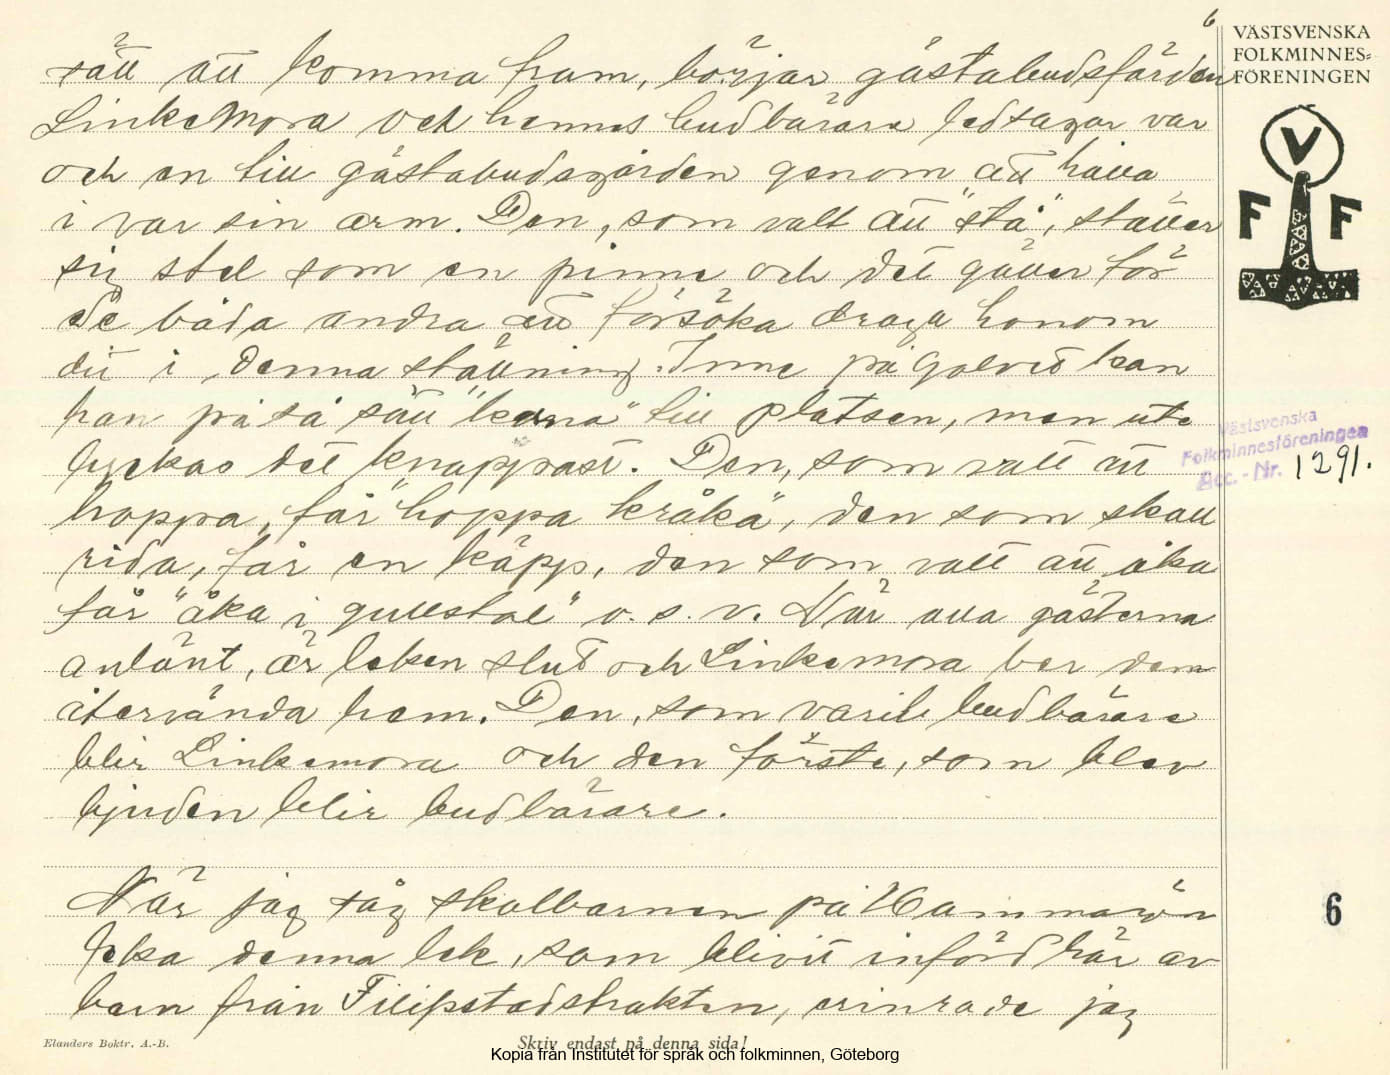 6
VÄSTSVENSKA
FOLKMINNES-
FÖRENINGEN
V
F F
sätt att komma fram, börjar gästabudsfärden
LinkeMora och hennes budbärare ledsagar var
och en till gästabudsgården genom att hålla
i var sin arm. Den, som valt att "stå", ställer
sig stel som en pinne och det gäller för
de båda andra att försöka draga honom
dit i denna ställning. Inne på golvet kan
han på så sätt "kana" till platsen, men ute
lyckas det knappast. Den, som valt att
hoppa, får "hoppa kråka", den som skall
rida, får en käpp, den som valt att åka
får "åka i gullstol" o. s. v. När alla gästerna
anlänt, är leken slut och Linkemora ber dem
återvända hem. Den, som varit budbärare
blir Linkemora och den förste, som blev
bjuden blir budbärare.
När jag såg skolbarnen på Hammarön
leka denna lek, som blivit införd här av
barn från Filipstadstrakten, erinrade jag
Västsvenska
Folkminnesföreningen
Acc. - Nr. 1291.
6
Elanders Boktr. A.-B.
Skriv endast på denna sida!
Kopia från Institutet för språk och folkminnen, Göteborg